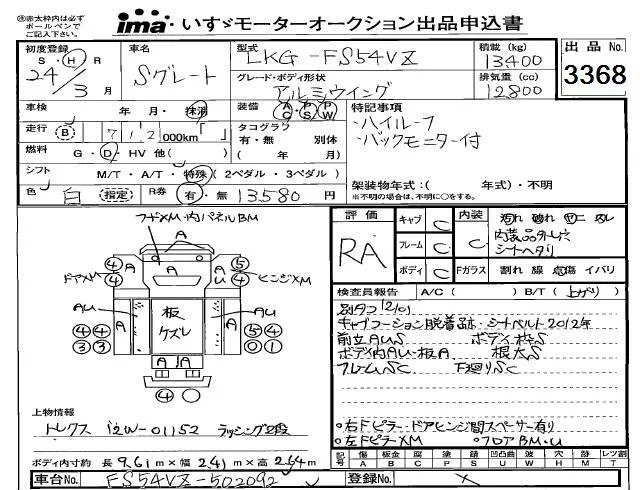 ㊟赤太枠内は必ず
ボールペンで
ご記入下さい。
ima いすゞモーターオークション出品申込書
初度登録
S・H・R
24/3月
車名
Sグレート
型式
LKG-FS54VZ
グレード・ボディ形状
アルミウイング
積載(kg)
13400
排気量(cc)
12800
出品No.
3368
車検 年 月・抹消
装備 AC PS PW
特記事項
・ハイルーフ
・バックモニター付
走行 B 712 000km「 」
タコグラフ
有・無 別体
( 年 月)
燃料 G・D・HV 他( )
シフト M/T・A/T・特殊(2ペダル・3ペダル)
架装物年式:( 年式)・不明
※不明の場合は、不明に○をする。
色 白 (指定) R券 有・無 13580円
評価 RA
キャブ C
フレーム C
ボディ C
内装 C
汚れ 破れ ヤニ スレ
内装品外し穴
シートヘタリ
Fガラス 割れ 線 点傷 イバリ
フードXM・内パネルBM
A
ドアXM
ヒンジXM
④ ④ A A ⑤ ④
AU A 板ケズレ A AU
④④ ⑤④
③③ ⓪①
A A
④
検査員報告 A/C( ) B/T(上がり)
別タコ12/01
キャブコーション脱着跡・シートベルト2012年
前立AUS ボディ枠S
ボディ内AU・板A 根太S
フレームSC 下廻りSC
○右Fピラー・ドアヒンジ間スペーサー有り
○左FピラーXM ○フロアBM・U
上物情報
トレクス 12W-01152 ラッシング2段
ボディ内寸約 長9.61m×幅2.41m×高2.64m
記号 傷A 板金B 腐C 塗P 錆S 凹凸曲U 波W 穴H 跡M レツ割T
車台No. FS54VZ-502092
登録No. ×